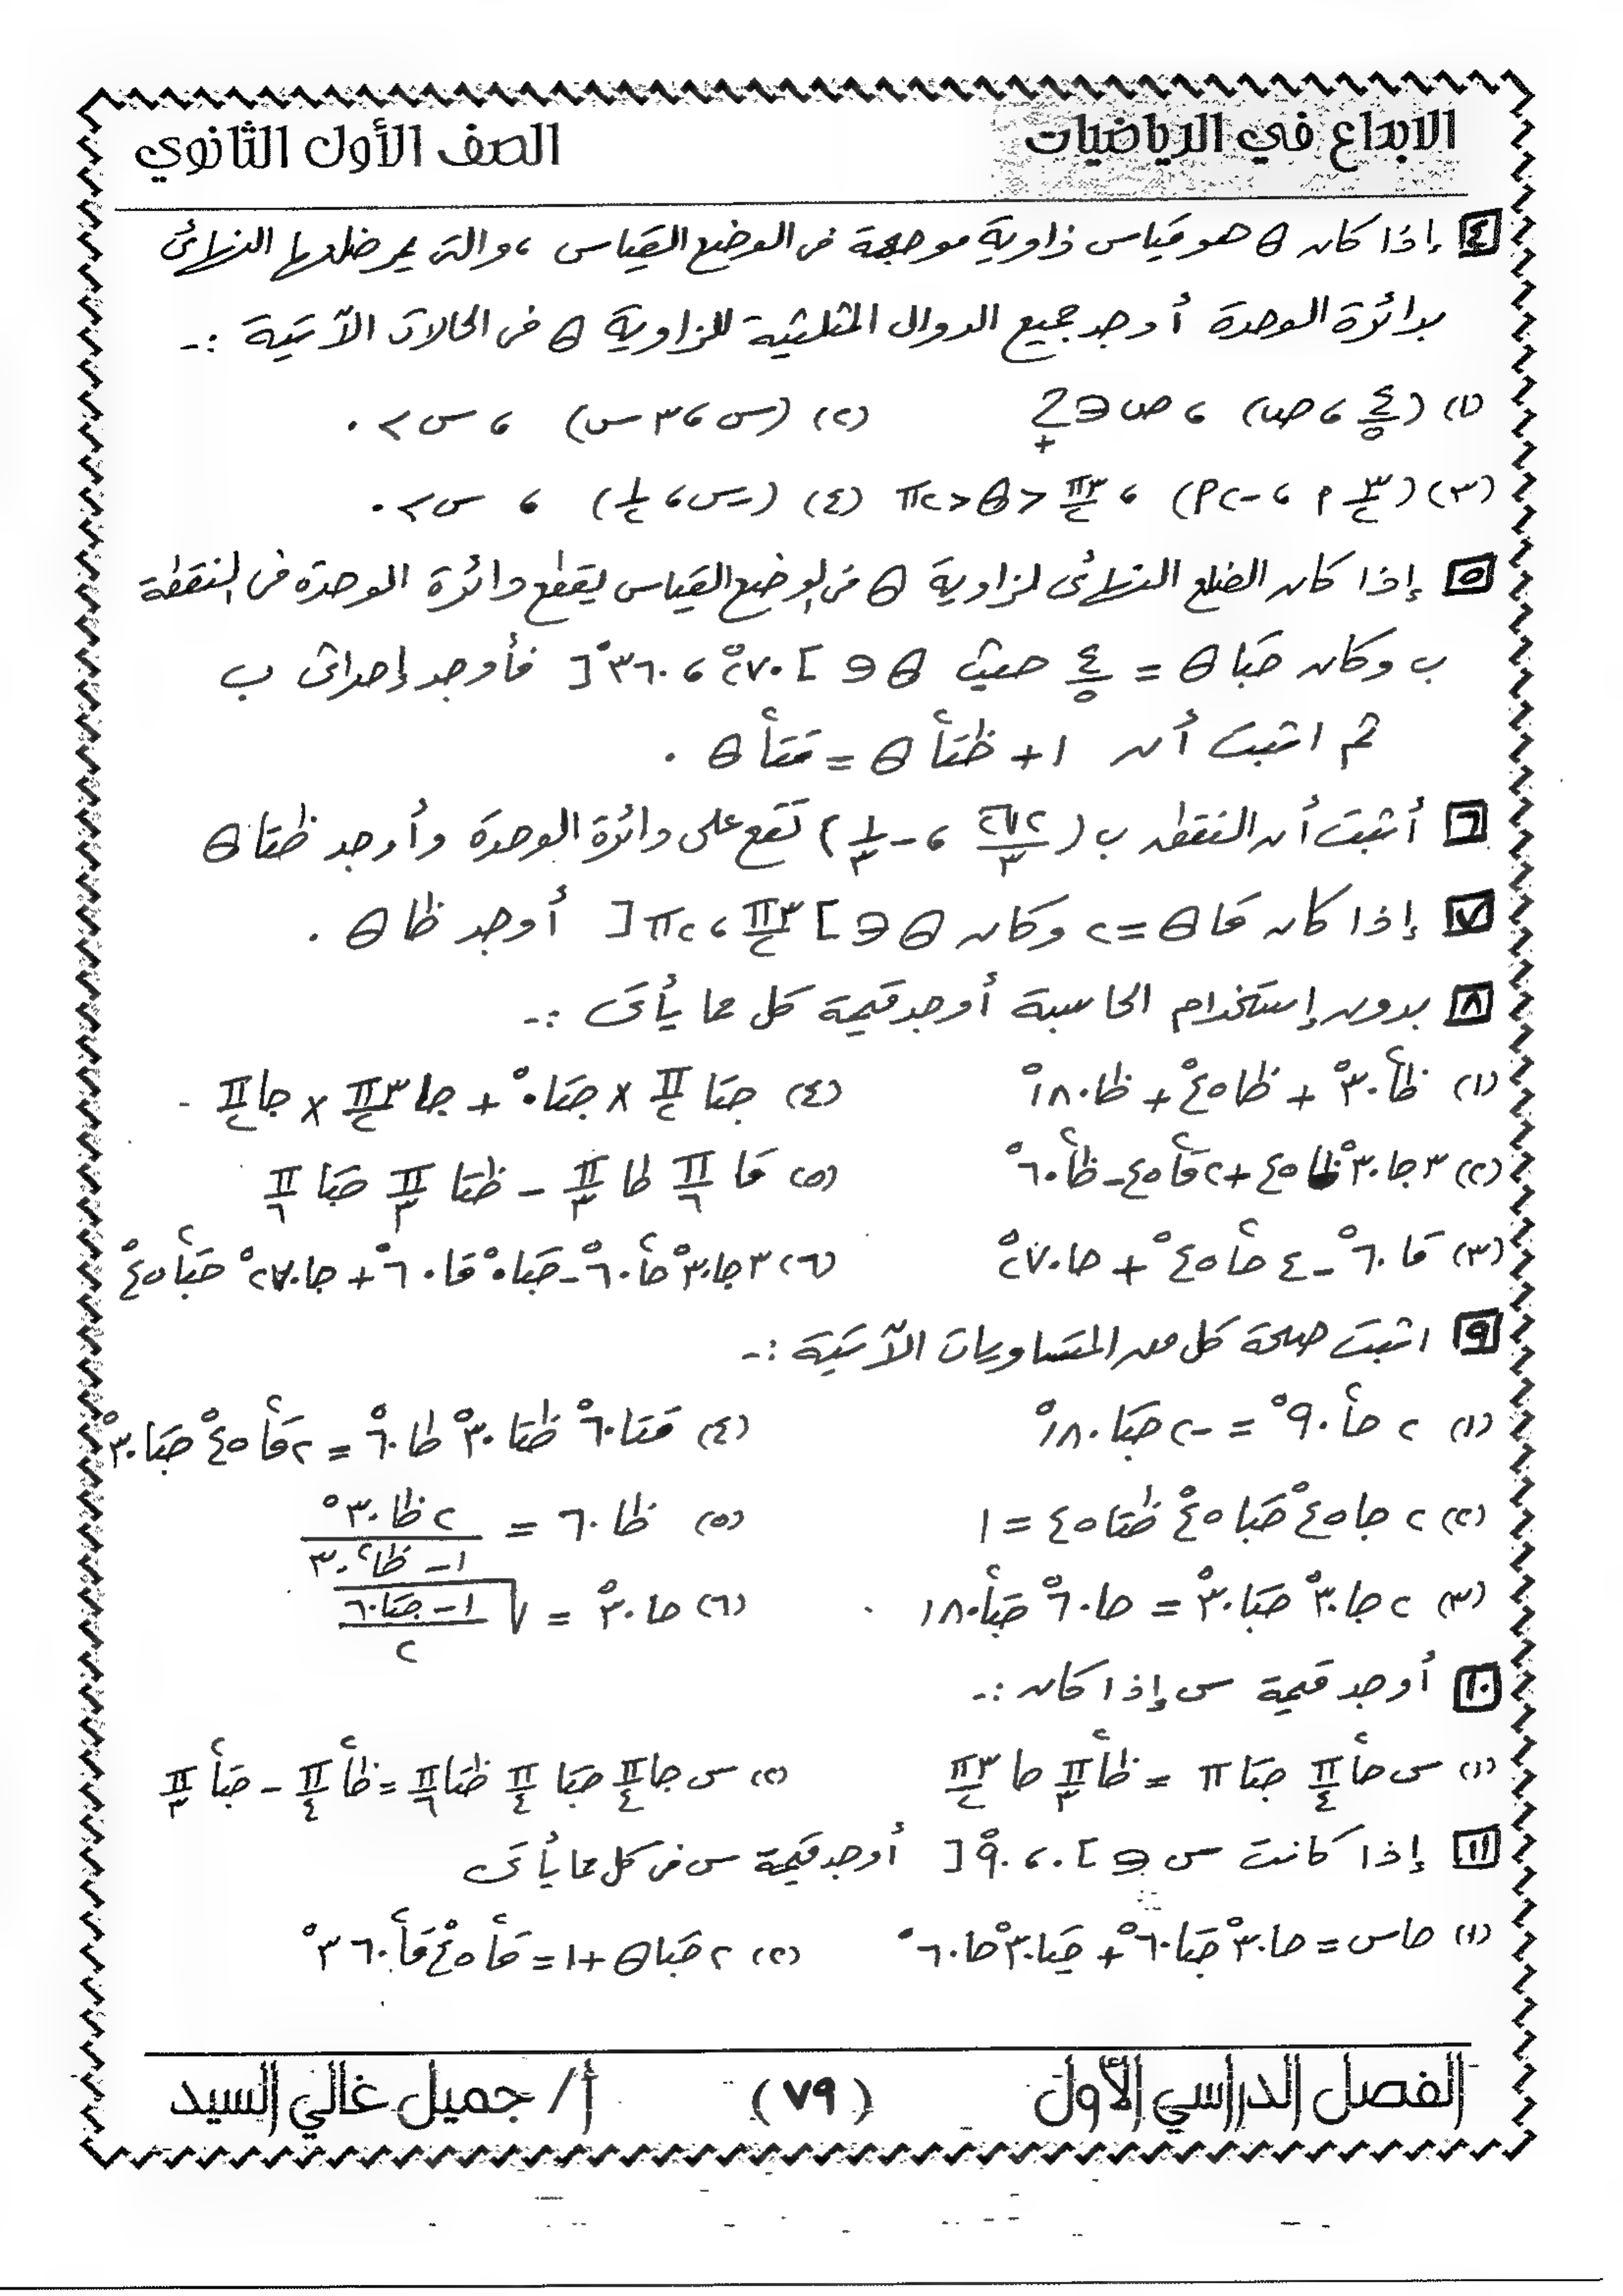 الابداع في الرياضيات
الصف الأول الثانوي
٤ إذا كان θ هو قياس زاوية موجهة فى الوضع القياسى ، والتى يمر ضلعها النهائى
بدائرة الوحدة أوجد جميع الدوال المثلثية للزاوية θ فى الحالات الآتية :-
(١) (٤/٥ ، ص) ، ص ∈ ح+ (٢) (س ، ٣س) ، س > ٠
(٣) (٣/٢ م ، -٢م) ، ٣π/٢ < θ < ٢π (٤) (-س ، ١/٢) ، س > ٠
٥ إذا كان الضلع النهائى لزاوية θ فى الوضع القياسى يقطع دائرة الوحدة فى النقطة
ب وكان جتا θ = ٤/٥ حيث θ ∈ [٢٧٠° ، ٣٦٠°[ فأوجد إحداثى ب
ثم اثبت أن ١ + ظتا²θ = قتا²θ .
٦ أثبت أن النقطه ب (٢√٢/٣ ، -١/٣) تقع على دائرة الوحدة وأوجد ظتا θ
٧ إذا كان قا θ = ٢ وكان θ ∈ ]٣π/٢ ، ٢π[ أوجد ظا θ .
٨ بدون إستخدام الحاسبة أوجد قيمة كل مما يأتى :-
(١) ظا²٣٠° + ظا٤٥° + ظا١٨٠° (٤) جتا π/٢ × جتا٠° + جا ٣π/٢ × جا π/٢
(٢) ٣جا٣٠° ظا٤٥ + ٢قا²٤٥ - ظا²٦٠° (٥) قا π/٦ ظا π/٣ - ظتا π/٣ جتا π/٦
(٣) قا٦٠° - ٤ جا²٤٥° + جا٢٧٠° (٦) ٣جا٣٠° جا²٦٠° - جتا٠° قا٦٠° + جا٢٧٠° جتا²٤٥°
٩ اثبت صحة كل من المتساويات الآتية :-
(١) ٢ جا²٩٠° = -٢ جتا١٨٠° (٤) قتا٦٠° ظتا٣٠° ظا٦٠° = ٢قا²٤٥° جتا٣٠°
(٢) ٢ جا٤٥° جتا٤٥° ظتا٤٥ = ١ (٥) ظا٦٠ = ٢ظا٣٠° / ١ - ظا²٣٠
(٣) ٢جا٣٠° جتا٣٠° = جا٦٠° جتا²١٨٠ (٦) جا٣٠° = √(١ - جتا٦٠ / ٢)
١٠ أوجد قيمة س إذا كان :-
(١) س جا²π/٤ جتا π = ظا²π/٣ جا ٣π/٢ (٢) س جا π/٤ جتا π/٤ ظتا π/٦ = ظا²π/٤ - جتا²π/٣
١١ إذا كانت س ∈ [٠ ، ٩٠°[ أوجد قيمة س فى كل مما يأتى
(١) جاس = جا٣٠° جتا٦٠° + جتا٣٠° جا٦٠° (٢) ٢جتا θ + ١ = قا²٤٥° قا²٣٦٠°
الفصل الدراسي الأول
(٧٩)
أ/ جميل غالي السيد